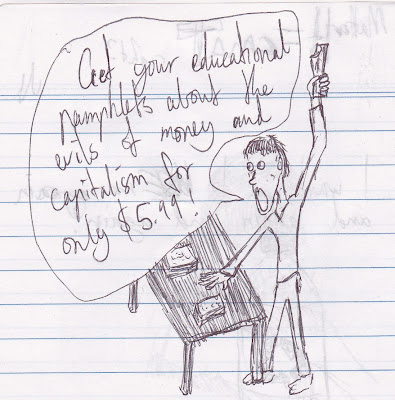 Get your educational
pamphlets about the
evils of money and
capitalism for
only $5.99!